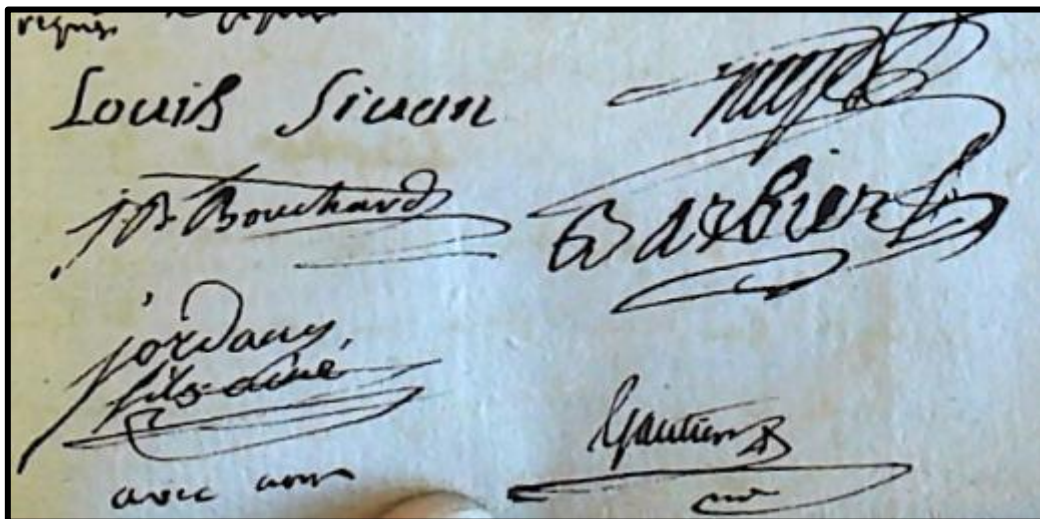 requis
Louis Sivan
JB Bouchard
Barbier
jordany
fils ainé
Gautier
avec nous